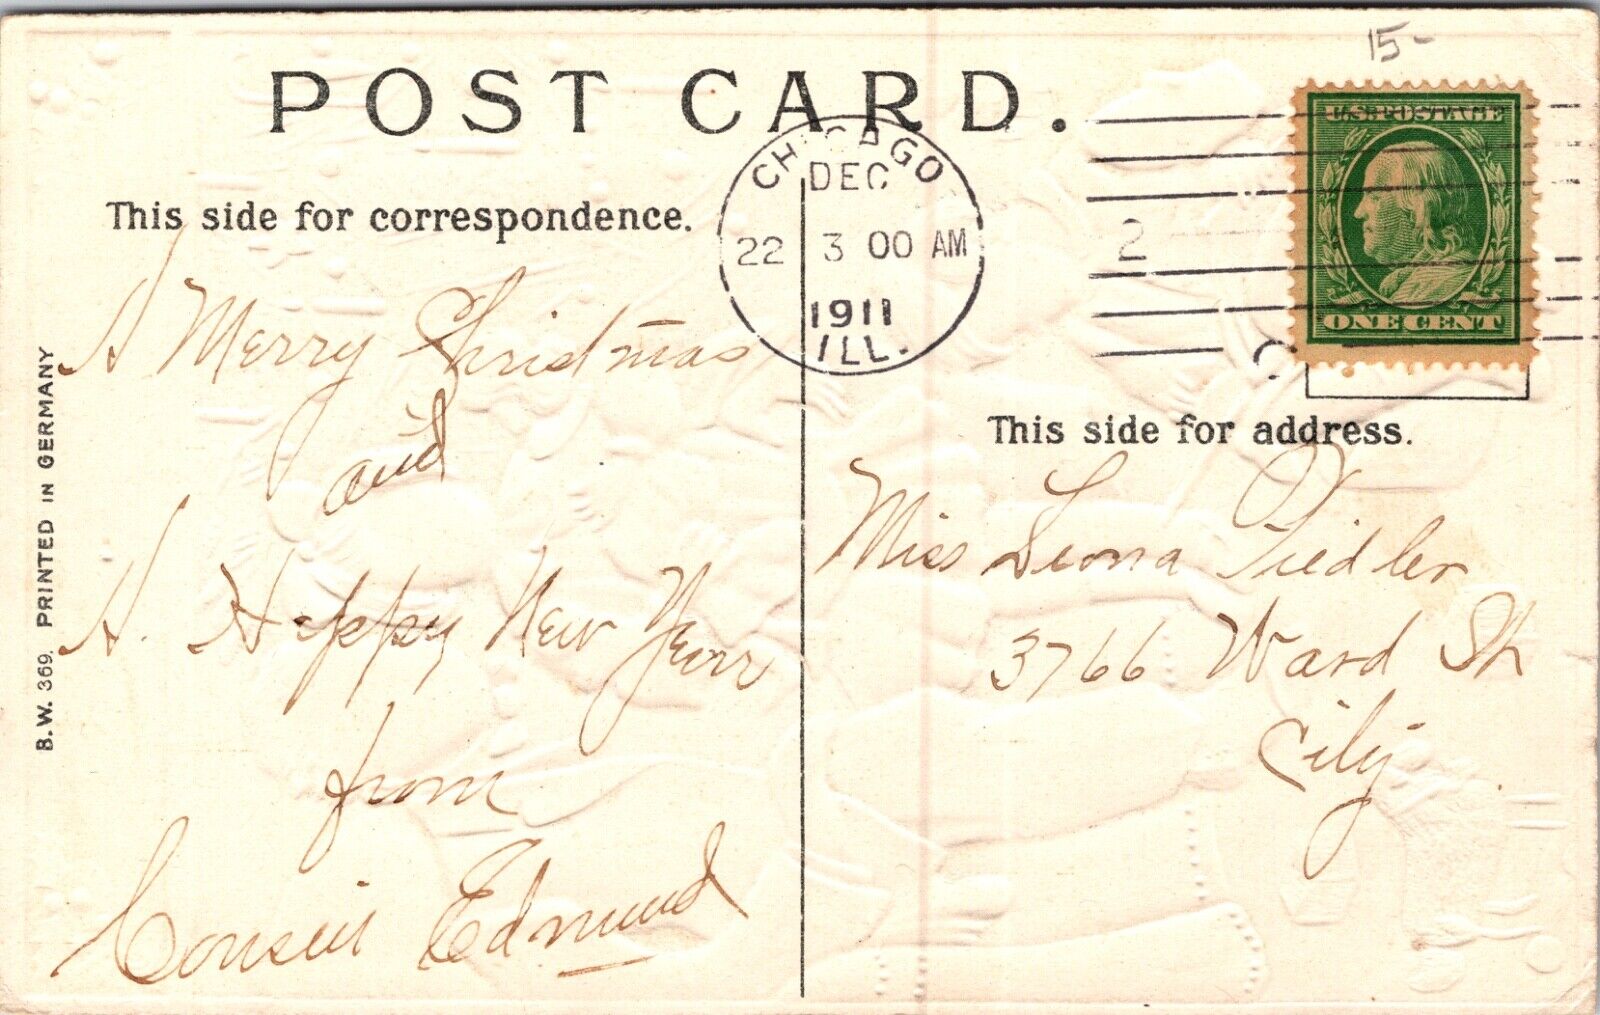 15-
POST CARD.
U.S. POSTAGE
ONE CENT
CHICAGO
DEC
22 3 00 AM
1911
ILL.
2
This side for correspondence.
A Merry Christmas
and
A. Happy New Year
from
Edmund
This side for address.
Miss Leona Fiedler
3766 Ward St
City
B.W. 369. PRINTED IN GERMANY